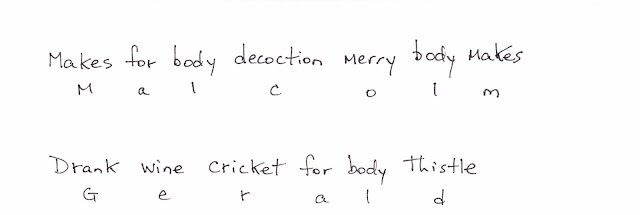 Makes for body decoction Merry body Makes
M a l c o l m
Drank wine cricket for body thistle
G e r a l d